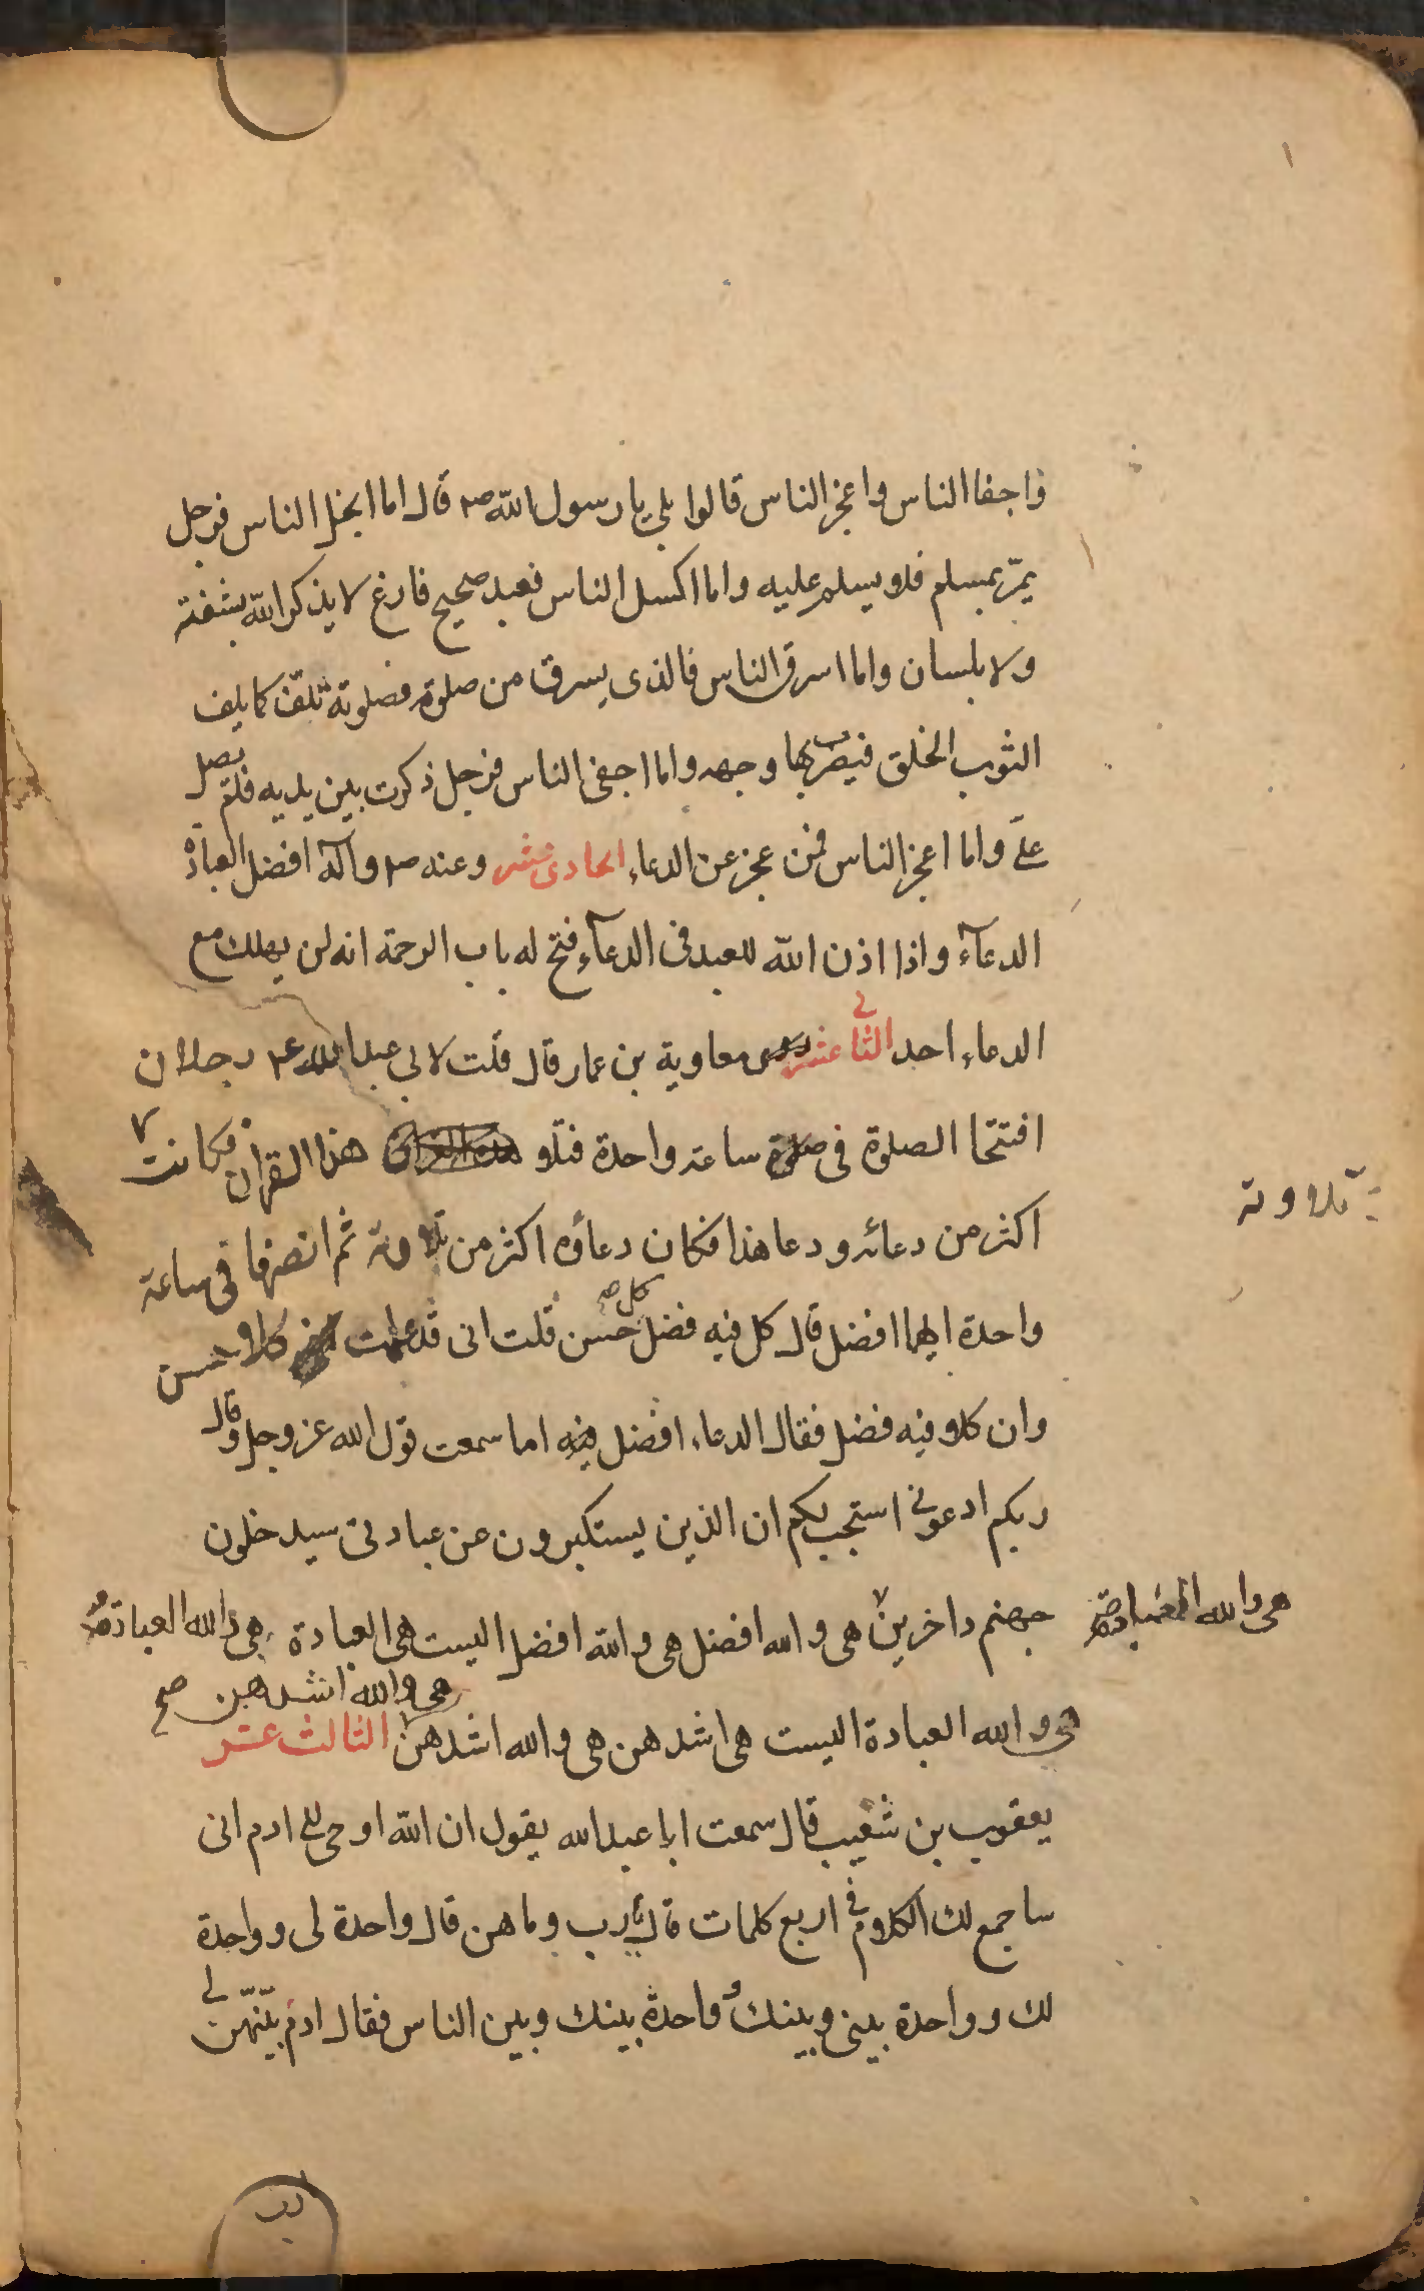 واجفا الناس واعجز الناس قالوا بلى يا رسول الله ص قال اما ابخل الناس فرجل
يمرّ بمسلم فلا يسلم عليه واما اكسل الناس فعبد صحيح فارغ لا يذكر الله بشفته
ولا بلسان واما اسرق الناس فالذى يسرق من صلوته فصلوته تلفّ كما يلف
الثوب الخلق فيضرب بها وجهه واما اجفى الناس فرجل ذكرت بين يديه فلم يصل
علىّ واما اعجز الناس فمن عجز عن الدعاء الحادى عشر وعنه ص وآله افضل العبادة
الدعآء واذا اذن الله للعبد فى الدعآء فتح له باب الرحمة انه لن يهلك مع
الدعاء احد الثانى عشر معاوية بن عمار قال قلت لابى عبدالله ع رجلان
افتتحا الصلوة فى ساعة واحدة فتلا هذا القران فكانت
تلاوته
اكثر من دعائه ودعا هذا فكان دعاؤه اكثر من تلاوته ثم انصرفا فى ساعة
واحدة ايهما افضل قال كل فيه فضل كل حسن قلت انى قد علمت كلا حسن
وان كلا فيه فضل فقال الدعاء افضل اما سمعت قول الله عز وجل وقال
ربكم ادعونى استجب لكم ان الذين يستكبرون عن عبادتى سيدخلون
جهنم داخرين هى والله افضل هى والله افضل اليست هى العبادة هى والله العبادة
هى والله العبادة
هى والله اشدهن صح
هى والله العبادة اليست هى اشدهن هى والله اشدهن الثالث عشر
يعقوب بن شعيب قال سمعت ابا عبدالله يقول ان الله اوحى الى ادم انى
ساجمع لك الكلام فى اربع كلمات قال يارب وما هن قال واحدة لى وواحدة
لك وواحدة بينى وبينك وواحدة بينك وبين الناس فقال ادم بيّنهنّ لى